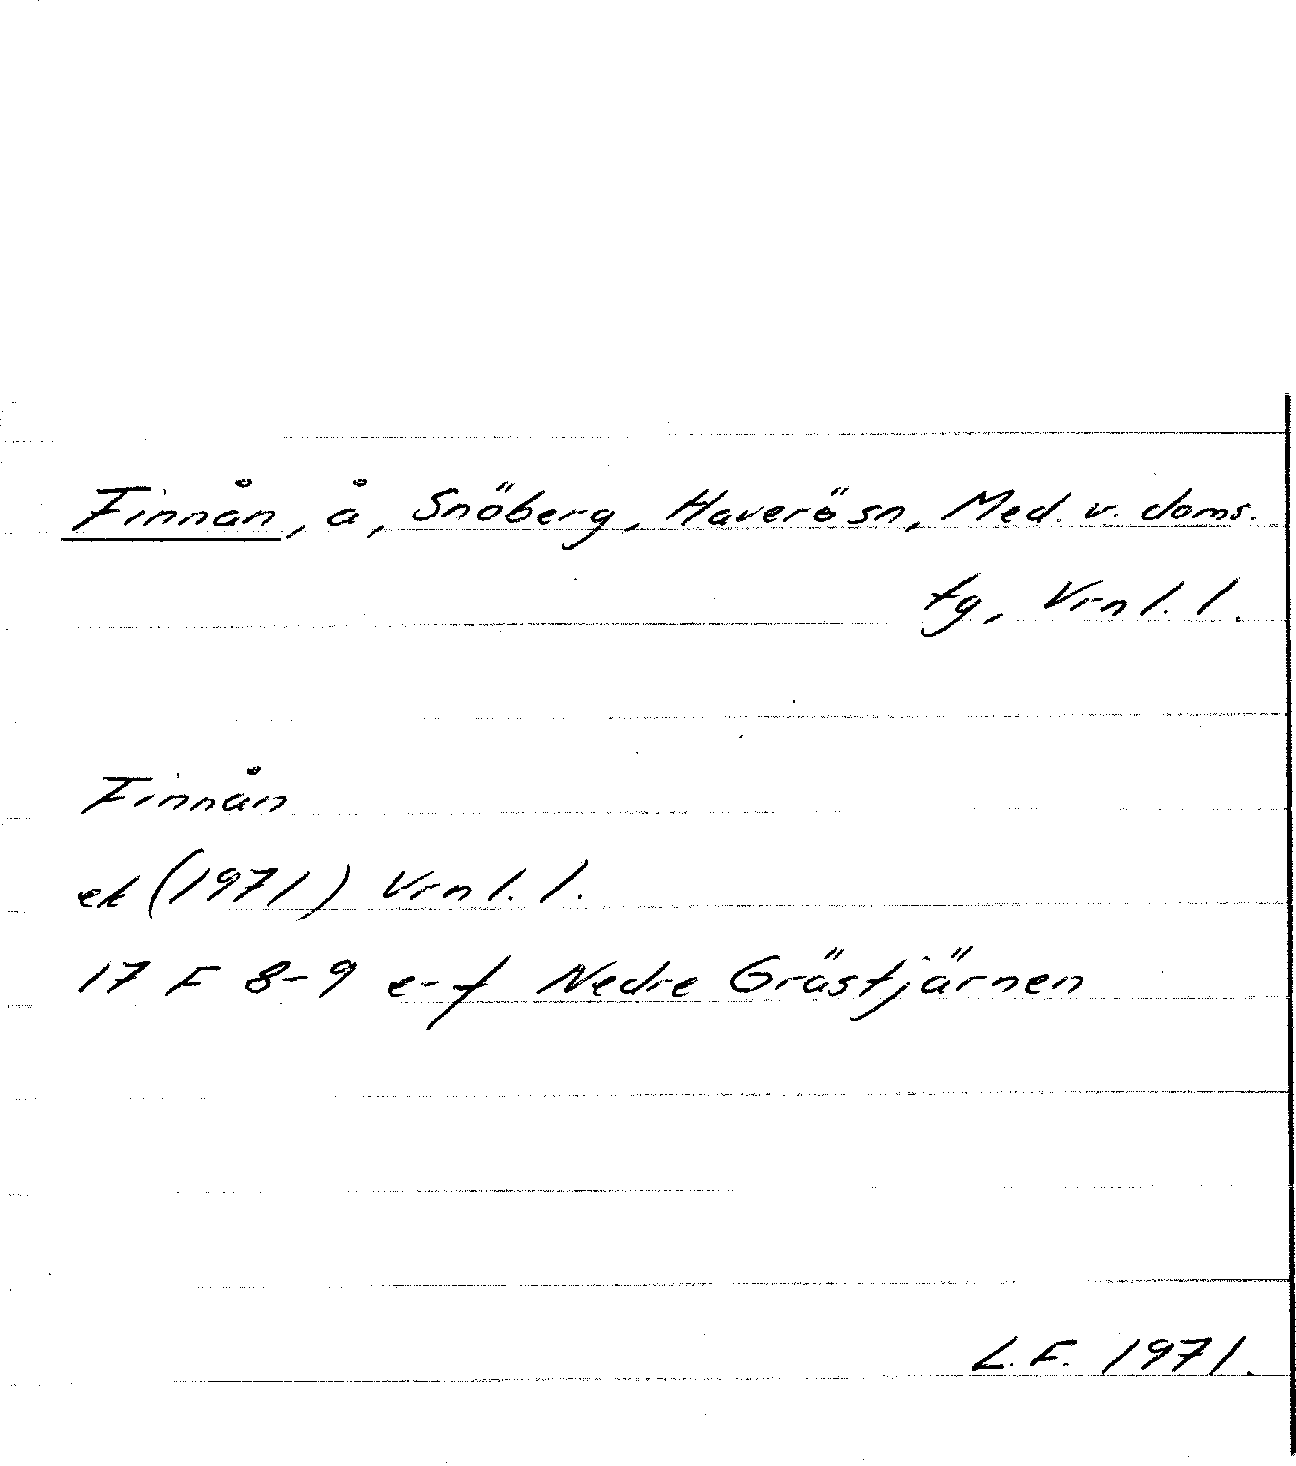 Finnån, å, Snöberg, Haverö sn, Med. v. doms.
tg, Vrnl. l.
Finnån
ek (1971) Vrnl. l.
17 F 8-9 e-f Nedre Grästjärnen
L. F. 1971.